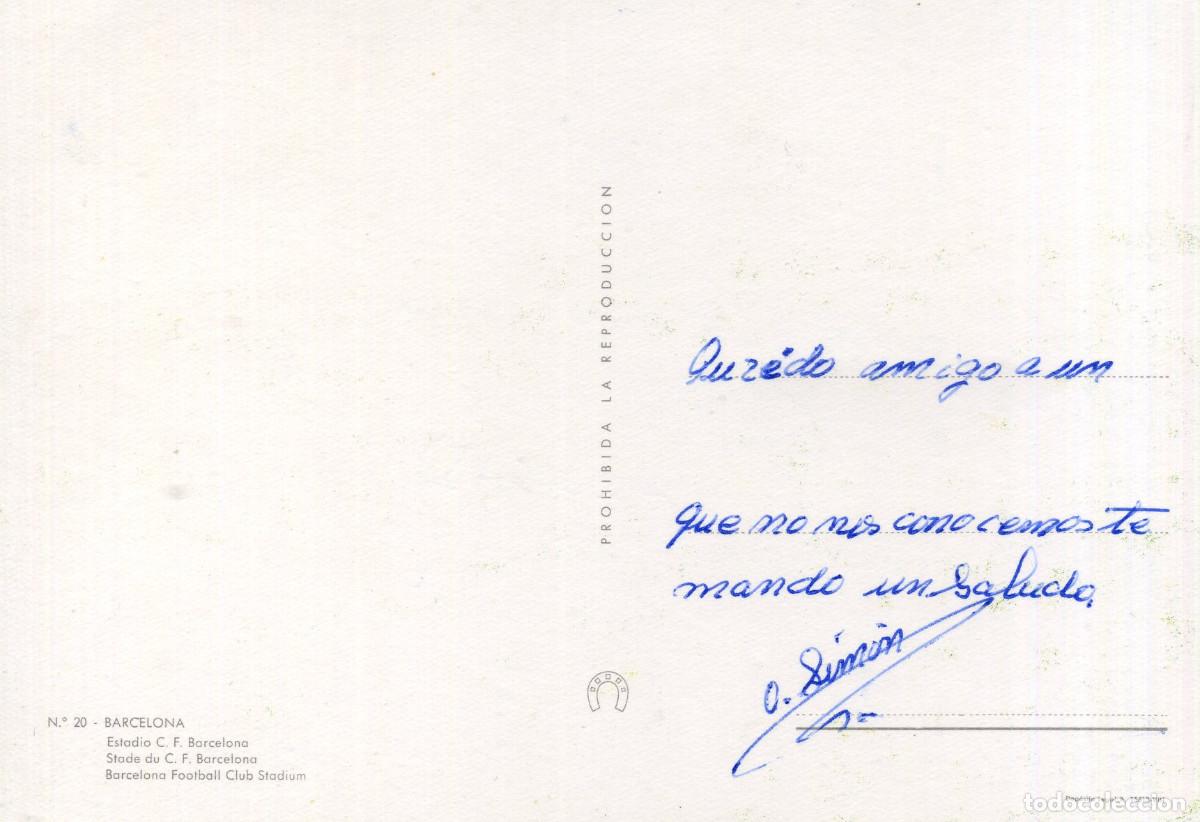 PROHIBIDA LA REPRODUCCION
Qurédo amigo a un
que no nos conocemos te
mando un saludo,
O. Simón
N.º 20 - BARCELONA
Estadio C. F. Barcelona
Stade du C. F. Barcelona
Barcelona Football Club Stadium
todocoleccion